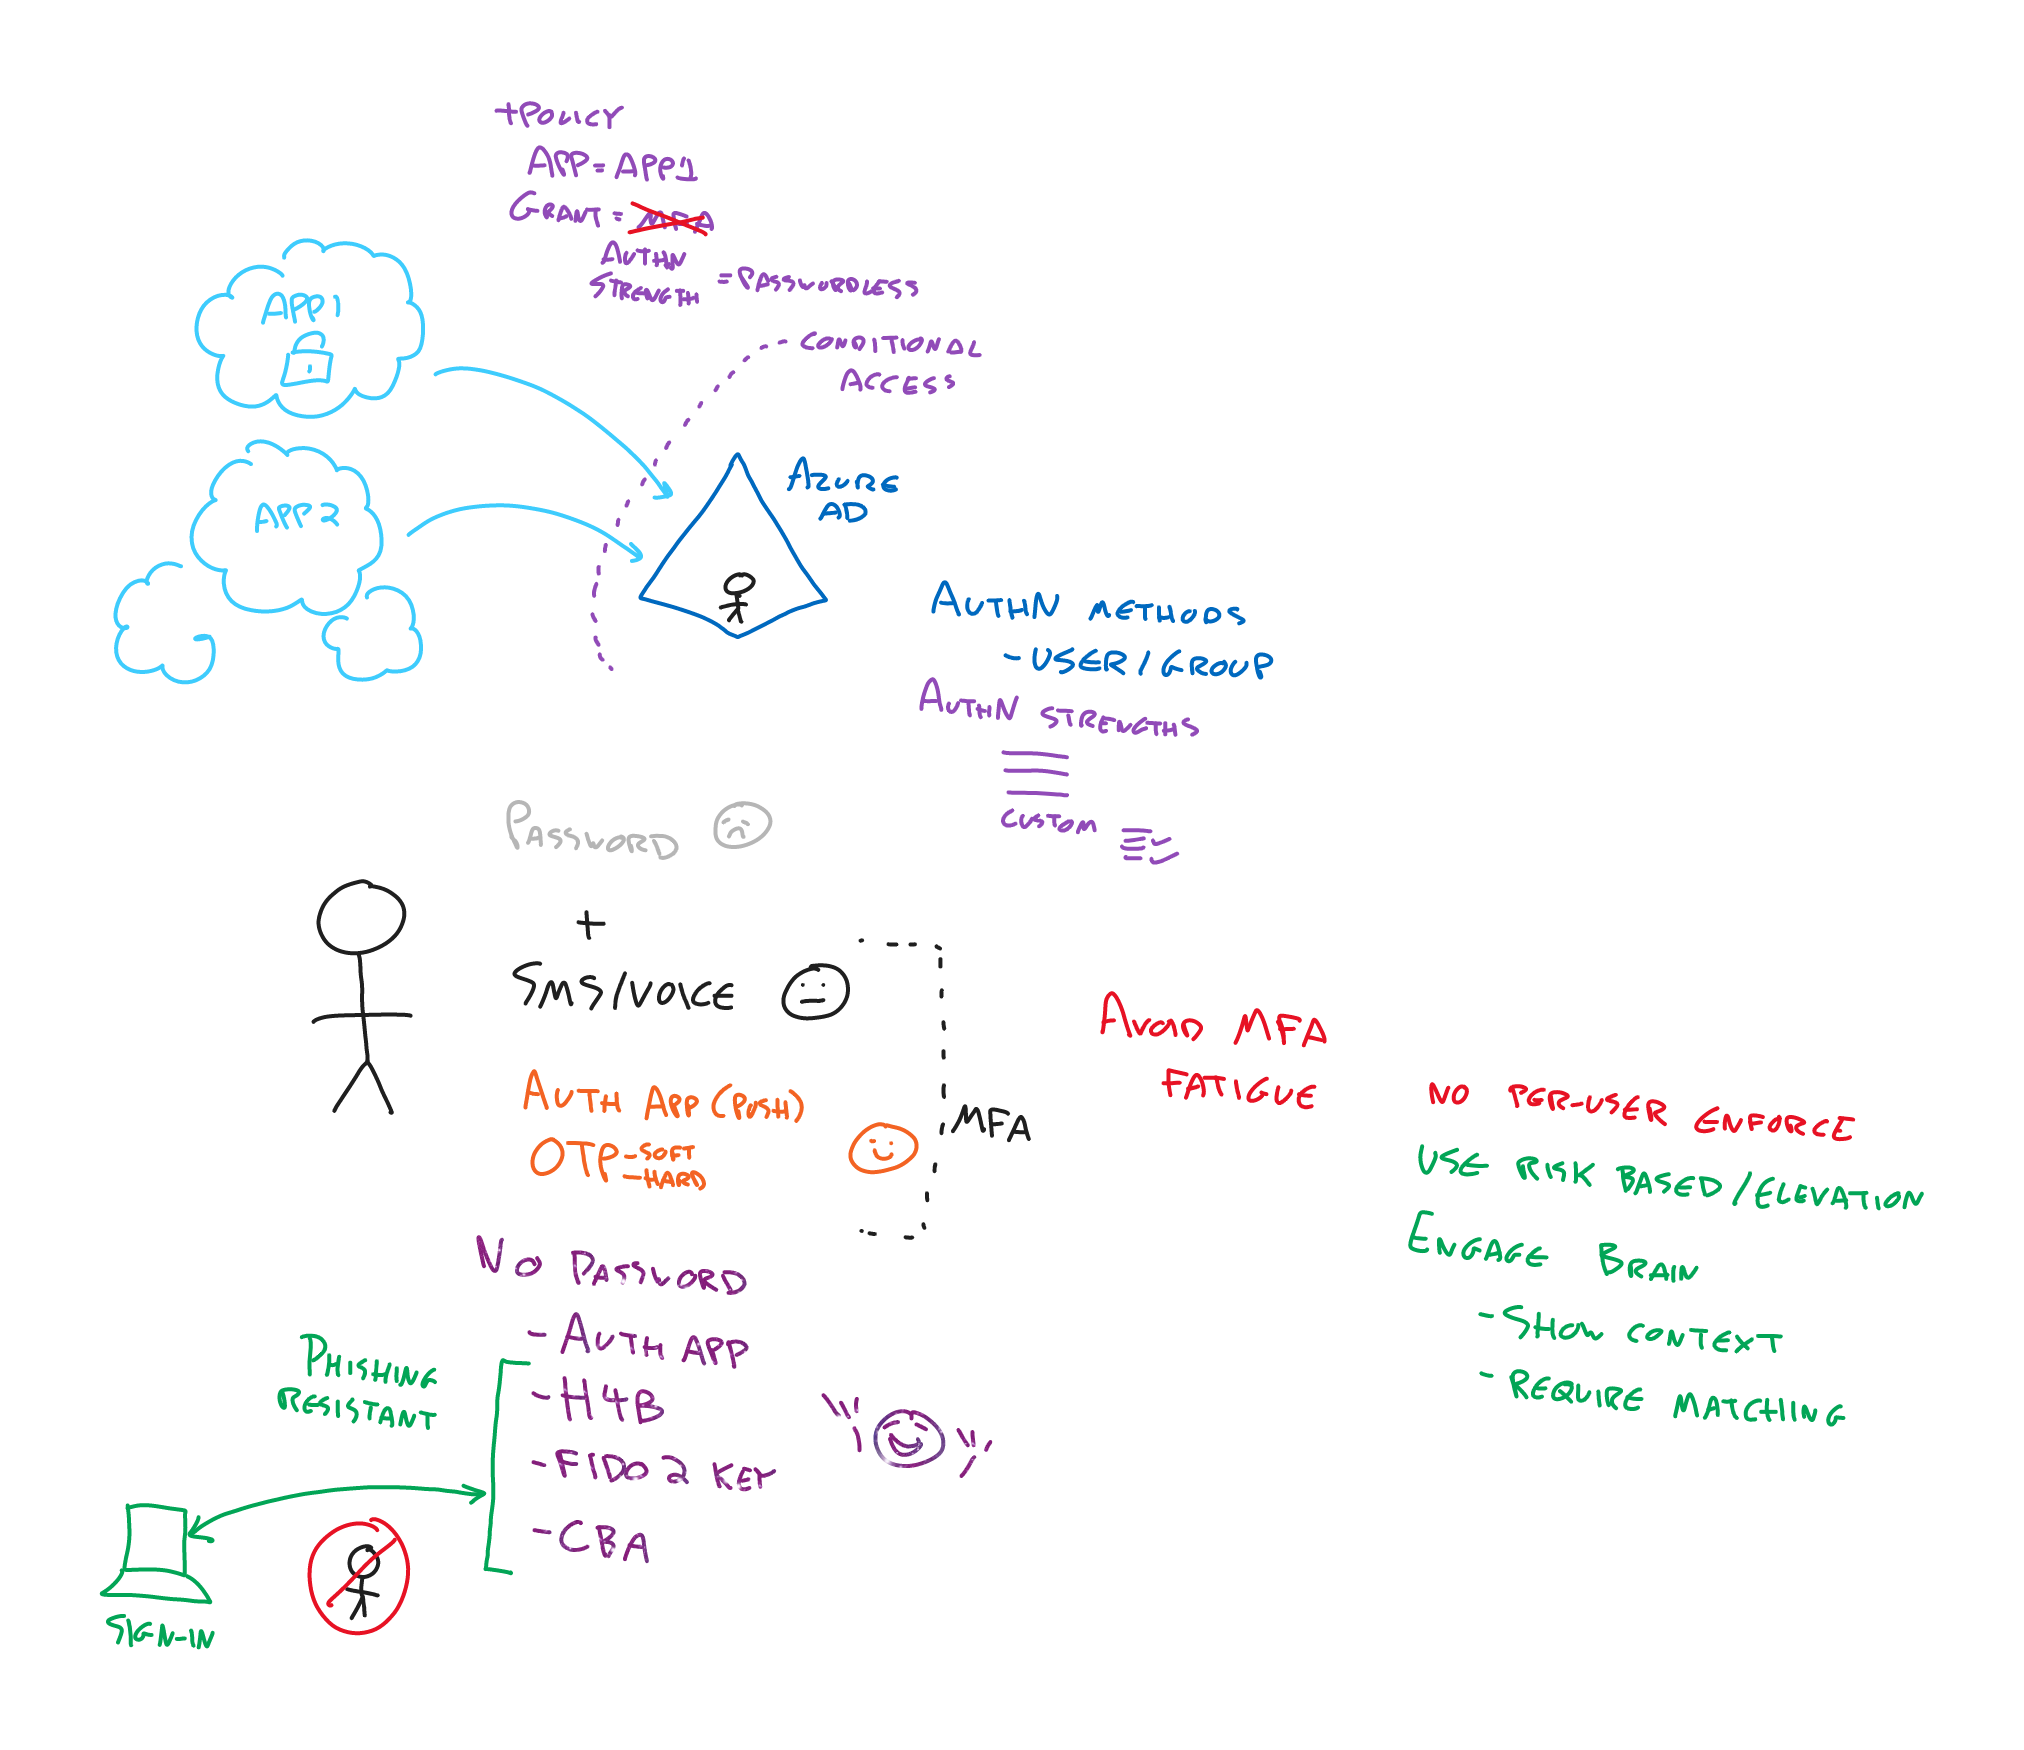 +POLICY
APP=APP1
GRANT=MFA
AUTHN
STRENGTH =PASSWORDLESS
CONDITIONAL
ACCESS
APP1
APP2
AZURE
AD
AUTHN METHODS
-USER/GROUP
AUTHN STRENGTHS
CUSTOM
PASSWORD
+
SMS/VOICE
AUTH APP (PUSH)
OTP-SOFT
-HARD
MFA
AVOID MFA
FATIGUE
NO PER-USER ENFORCE
USE RISK BASED/ELEVATION
ENGAGE BRAIN
-SHOW CONTEXT
-REQUIRE MATCHING
NO PASSWORD
-AUTH APP
-H4B
-FIDO2 KEY
-CBA
PHISHING
RESISTANT
SIGN-IN